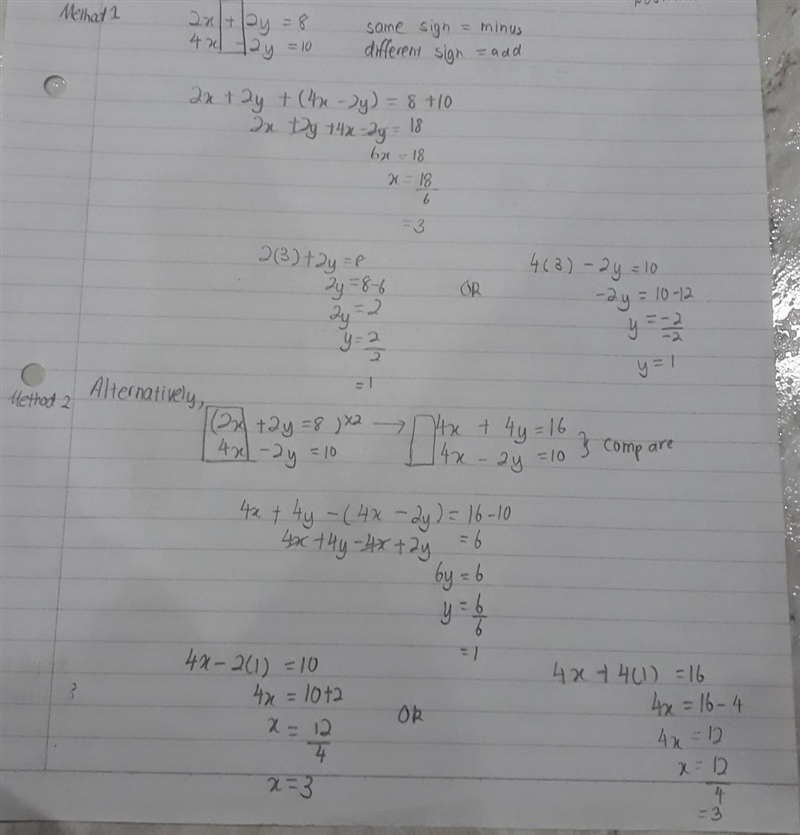 Method 1
2x + 2y = 8 same sign = minus
4x - 2y = 10 different sign = add
2x + 2y + (4x - 2y) = 8 + 10
2x + 2y + 4x - 2y = 18
6x = 18
x = 18/6
= 3
2(3) + 2y = 8
2y = 8-6
2y = 2
y = 2/2
= 1
OR
4(3) - 2y = 10
-2y = 10-12
y = -2/-2
y = 1
Method 2 Alternatively,
(2x + 2y = 8) x2 → 4x + 4y = 16
4x - 2y = 10 4x - 2y = 10 } compare
4x + 4y - (4x - 2y) = 16 - 10
4x + 4y - 4x + 2y = 6
6y = 6
y = 6/6
= 1
4x - 2(1) = 10
4x = 10+2
x = 12/4
x = 3
OR
4x + 4(1) = 16
4x = 16 - 4
4x = 12
x = 12/4
= 3